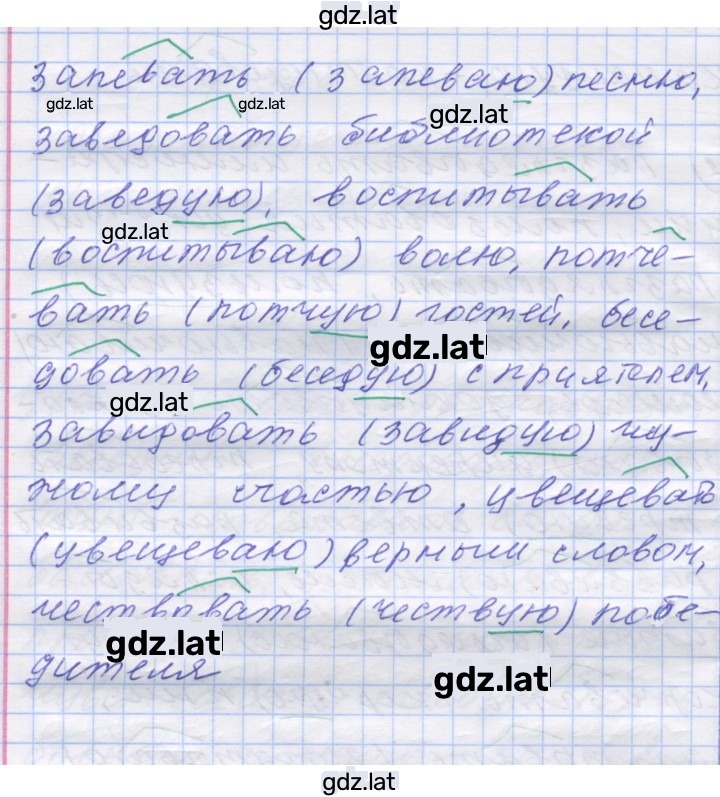 gdz.lat
запевать (запеваю) песню,
gdz.lat gdz.lat gdz.lat
заведовать библиотекой
(заведую), воспитывать
gdz.lat
(воспитываю) волю, потче-
вать (потчую) гостей, бесе-
gdz.lat
довать (беседую) с приятелем,
gdz.lat
завидовать (завидую) чу-
жому счастью, увещевать
(увещеваю) верным словом,
чествовать (чествую) побе-
gdz.lat
дителя
gdz.lat
gdz.lat